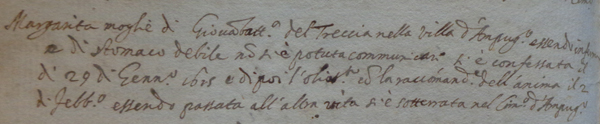 Margarita moglie di Giovabatt.ª del Treccia nella villa d'Ampug.º essendo inferma
e di stomaco debile nō si è potuta communicar.e si è confessata
di 29 di Genn.º 1615 e di poi l'olio s.to cō la raccōmand.e dell'anima il 2
di Febb.º essendo passata all'altra vita si è sotterrata nel Cim.º d'Ampug.º